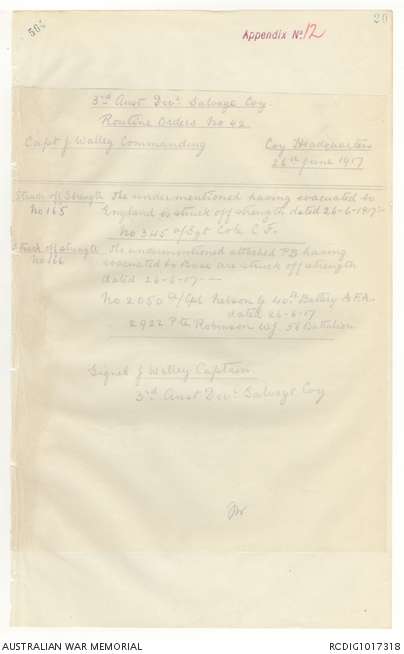 50
20
Appendix No 12
3rd Aust Divl Salvage Coy
Routine Orders No 42
Capt J Walley Commanding
Coy Headquarters
26th June 1917
Struck off Strength
No 165
The undermentioned having evacuated to
England is struck off strength dated 26-6-1917
No 345 a/Sgt Cole C F.
Struck off strength
No 166
The undermentioned attached PB having
evacuated to Base are struck off strength
dated 26-6-17
No 2050 a/Cpl Nelson G 40th Battery A.F.A.
dated 26-6-17
2922 Pte Robinson W.J. 38 Battalion
Signed J Walley Captain
3rd Aust Divl Salvage Coy
JW
AUSTRALIAN WAR MEMORIAL
RCDIG1017318